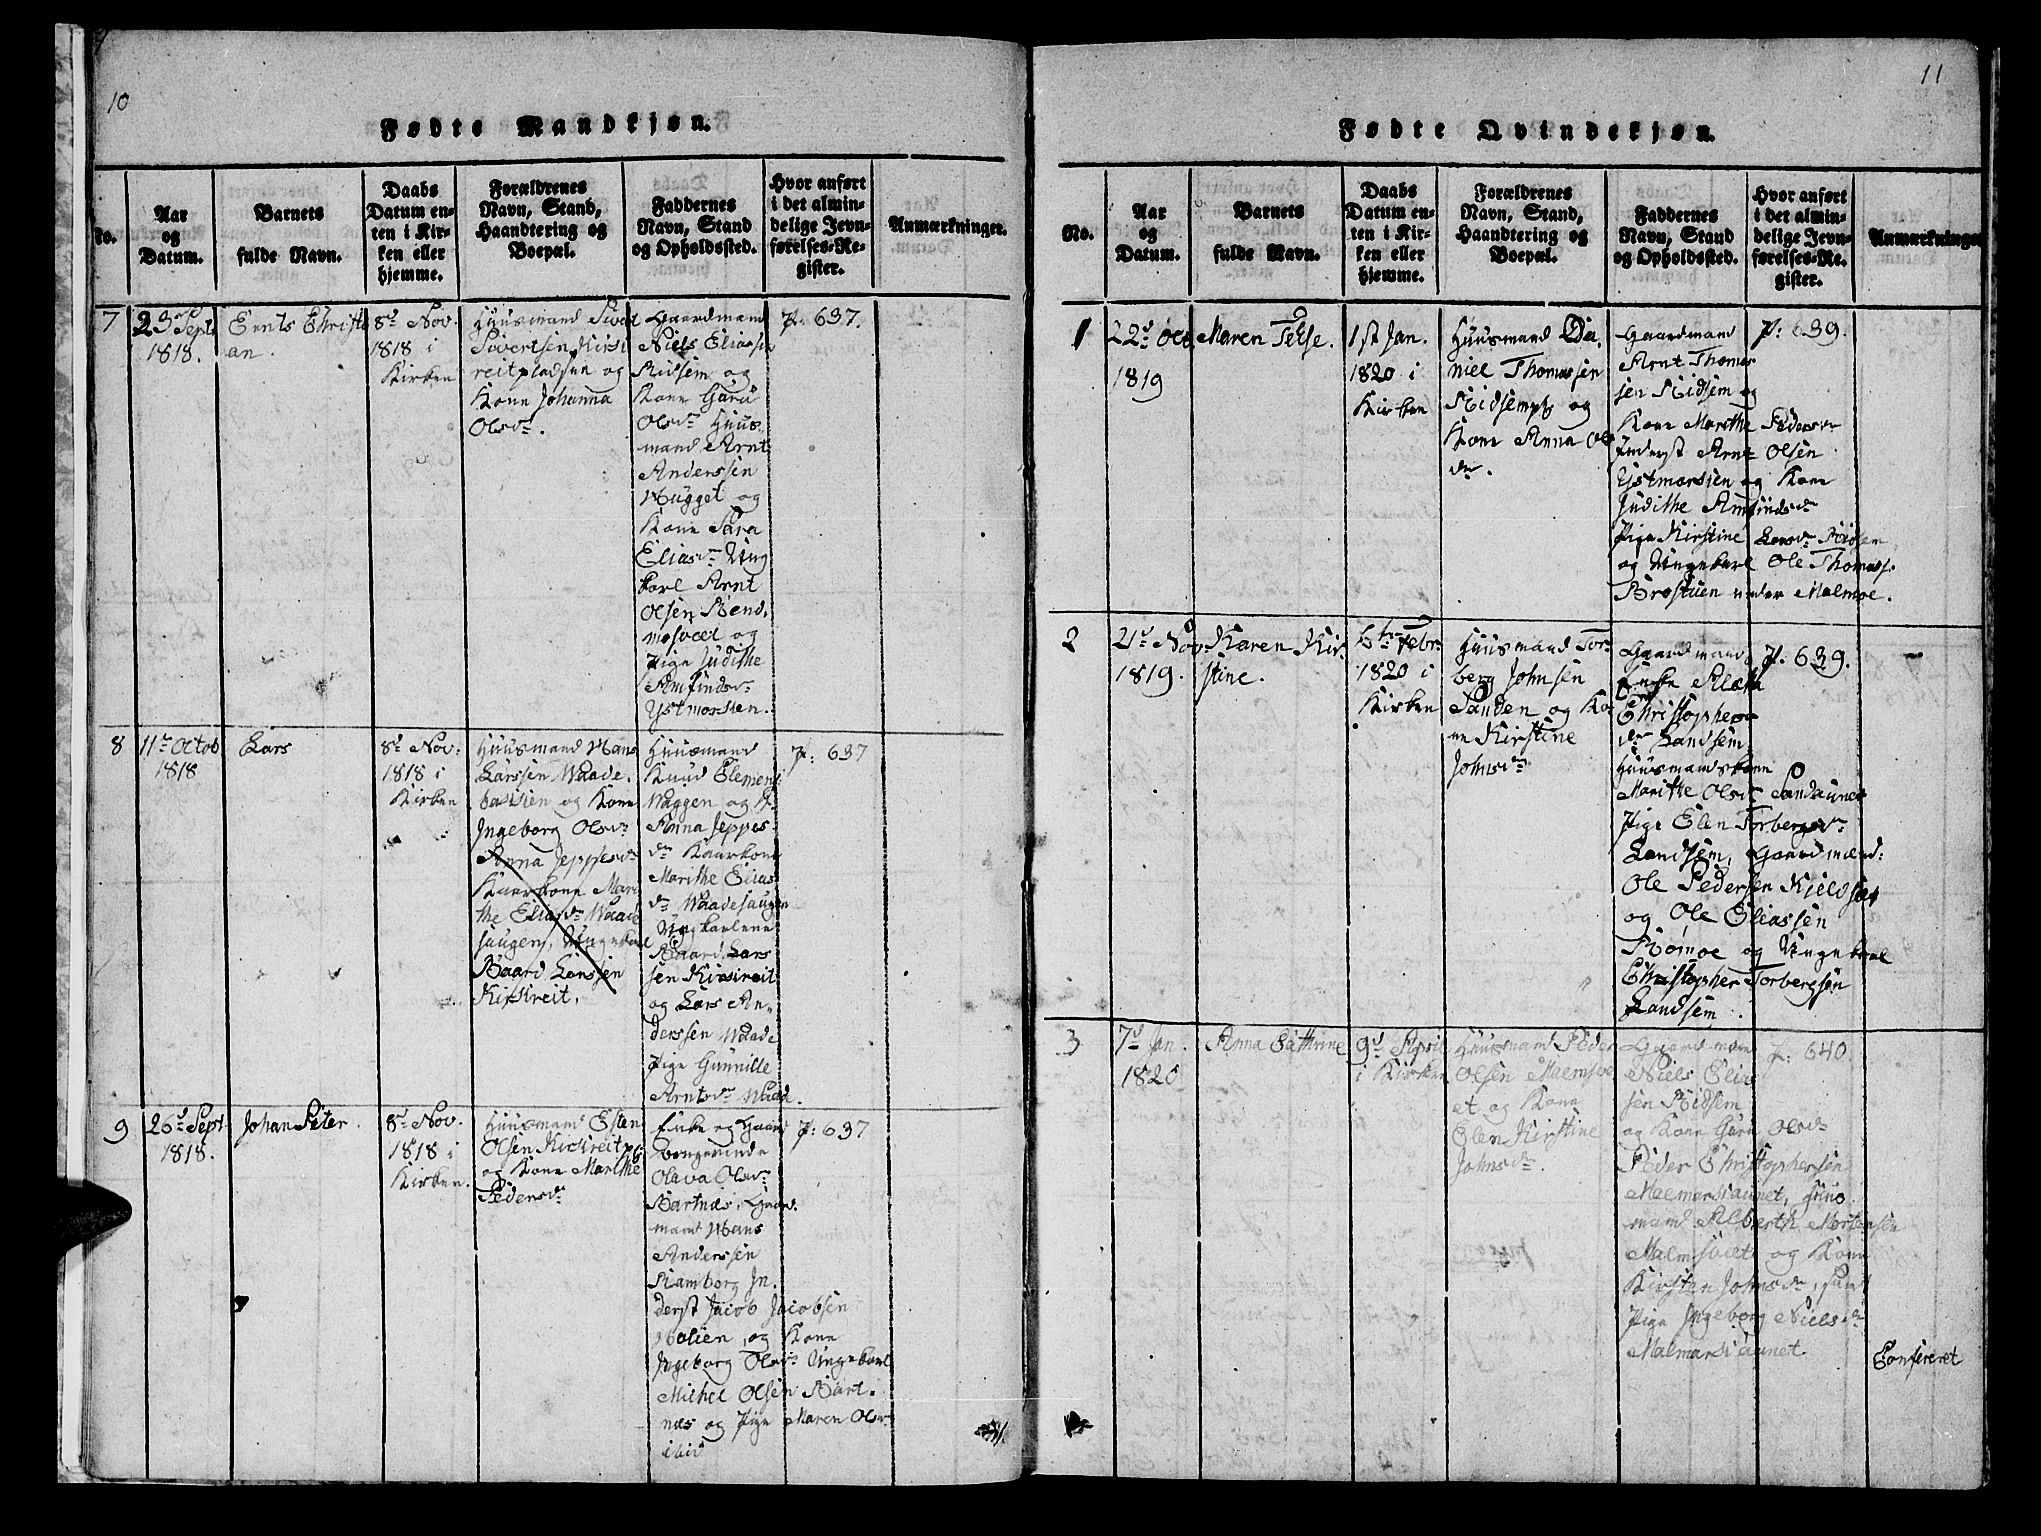 10
Fødte Mandkjøn.
No.
Aar
og
Datum.
Barnets
fulde Navn.
Daabs
Datum en-
ten i Kir-
ken eller
hjemme.
Forældrenes
Navn, Stand,
Haandtering og
Boepæl.
Faddernes
Navn, Stand
og Opholdssted.
Hvor anført
i det almin-
delige Jevn-
førelses-Re-
gister.
Anmærkninger.
7
23 Sept
1818.
Ernts Christi
an.
8d Nov.
1818 i
Kirken
Huusmand Sivert
Sivertsen Kirk
reitpladsen og
Kone Johanna
Olsdr.
Gaardmand
Niels Eliassen
Kone Guru
Olsdr Huus
mand Arnt
Anderssen
og
Kone Sara
Eliasdr Ung
karl Arnt
Olsen
og
Pige Judithe
Amfindsdr
Ystmarsien.
p: 637.
8
11te Octob
1818
Lars
8d Nov:
1818 i
Kirken
Huusmand Hans
Larssen Waade.
og Kone
Ingeborg Olsdr
Anna Jeppesdr
Kaarkone Mari
the Eliasdr Waade
saugen, Ungekarl
Baard Larssen
Kirkreit.
Huusmand
Knud Clemens
og K.
Anna Jeppes
dr Kaarkone
Marithe Elias
dr Waadesaugen
Ungkarlene
Baard Lars
sen Kirkreit
og Lars An-
derssen Waade
Pige Gunnille
Arntsdr Waad.
p: 637
9
26d Sept
1818.
Johan Peter.
8d Nov.
1818 i
Kirken.
Huusmand Esten
Olsen Kirkreitpl
og Kone Marithe
Pedersdr
Enke og Gaard
Olava Olsdr
Bartnæs, Gaard
mand Hans
Anderssen
Stamborg In-
derst Jacob Jacobsen
og Kone
Ingeborg Olsdr Ungekarl
Michel Olsen Bart-
næs og Pige Maren Olsdr
ibid
p: 637
11
Fødte Qvindekjøn.
No.
Aar
og
Datum.
Barnets
fulde Navn.
Daabs
Datum en-
ten i Kir-
ken eller
hjemme.
Forældrenes
Navn, Stand,
Haandtering og
Boepæl.
Faddernes
Navn, Stand
og Opholdssted.
Hvor anført
i det almin-
delige Jevn-
førelses-Re-
gister.
Anmærkninger
1
22d Oct.
1819
Maren
1st Jan.
1820 i
Kirken
Huusmand Da
niel Thomassen
og
Kone Anna Ols
dr.
Gaardmand
Arnt Thomas
sen og
Kone Marithe Pedersdr
Inderst Arnt Olsen
Ystmarsien og Kone
Judithe Amfindsdr
Pige Kirstine Larsdr
og Ungekarl Ole Thomass.
Brostuen under Malmoe.
p: 639.
2
21d Nov
1819.
Karen Kir-
stine.
Febr.
1820 i
Kirken
Huusmand Tor-
berg Johnsen
Sanden og Ko
ne Kirstine
Johnsdr
Gaardmands
Enke
Christopher
dr Landsem,
Huusmandskone
Marithe Olsdr Sandaunet
Pige Elen Torbergsdr
Landsem, Gaardmænd:
Ole Pedersen
og Ole Eliassen
og Ungekarl
Christopher Torbergsen
Landsem.
p: 639.
3
7d Jan.
1820
Anna Cathrine
9d April
i Kirken
Huusmand Peder
Olsen Malmsve
et og Kone
Elen Kirstine
Johnsdr.
Gaardmand
Niels Elias
sen
og Kone Guru Olsdr
Peder Christophersen
Malmarsiaunet, Huus
mand Alberth Mortensen
Malmsveet og Kone
Kirsten Johnsdr, samt
Pige Ingeborg Nielsdr
Malmarsiaunet
p: 640.
Confereret